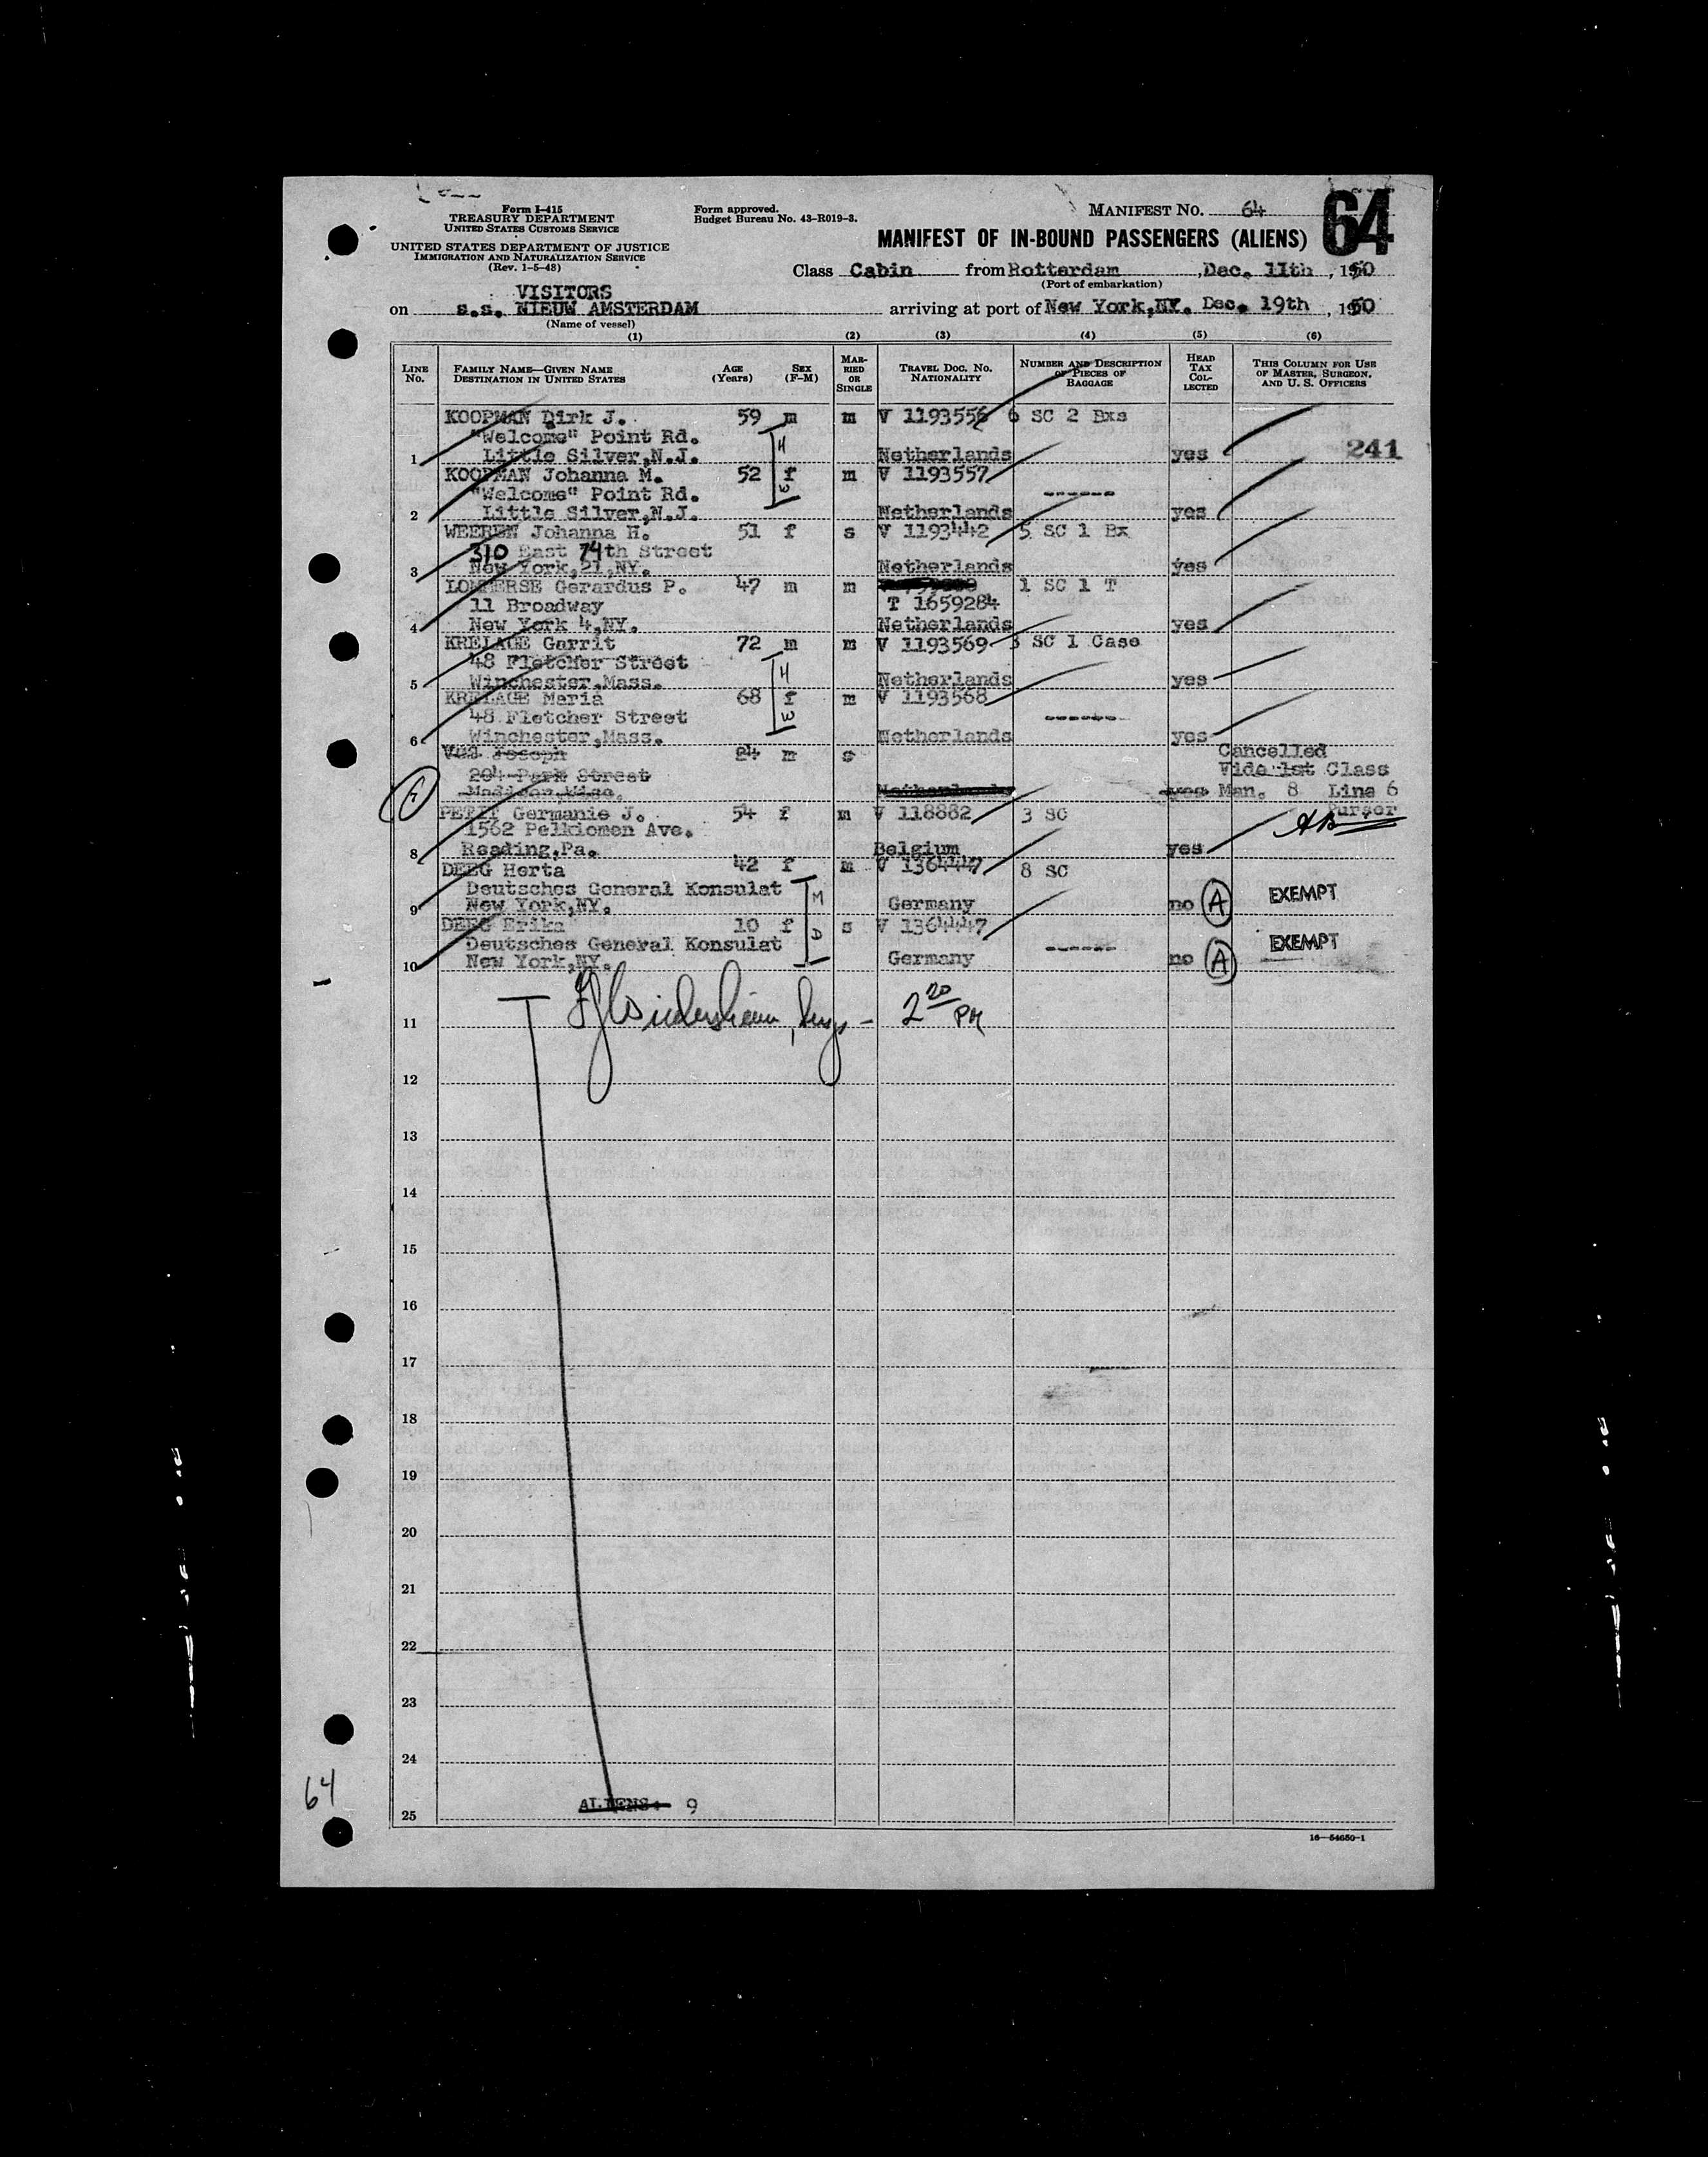 Form I-415
TREASURY DEPARTMENT
UNITED STATES CUSTOMS SERVICE
UNITED STATES DEPARTMENT OF JUSTICE
IMMIGRATION AND NATURALIZATION SERVICE
(Rev. 1-5-48)
Form approved.
Budget Bureau No. 43-R019-3.
MANIFEST NO. 64
64
MANIFEST OF IN-BOUND PASSENGERS (ALIENS)
Class Cabin from Rotterdam, Dec. 11th, 1950
(Port of embarkation)
VISITORS
on s.s. NIEUW AMSTERDAM arriving at port of New York, NY. Dec. 19th, 1950
(Name of vessel)
(1) (2) (3) (4) (5) (6)
LINE No. FAMILY NAME—GIVEN NAME DESTINATION IN UNITED STATES AGE (Years) SEX (F-M) MARRIED OR SINGLE TRAVEL DOC. NO. NATIONALITY NUMBER AND DESCRIPTION OF PIECES OF BAGGAGE HEAD TAX COLLECTED THIS COLUMN FOR USE OF MASTER, SURGEON, AND U. S. OFFICERS
KOOPMAN Dirk J. 59 m m V 1193556 6 SC 2 Bxs
"Welcome" Point Rd. H
1 Little Silver, N.J. Netherlands yes 241
KOOPMAN Johanna M. 52 f m V 1193557
"Welcome" Point Rd. W ------
2 Little Silver, N.J. Netherlands yes
WEEREN Johanna H. 51 f s V 1193442 5 SC 1 Bx
310 East 74th Street
3 New York, 21, NY. Netherlands yes
LOMMERSE Gerardus P. 47 m m 1 SC 1 T
11 Broadway T 1659284
4 New York 4, NY. Netherlands yes
KRELAGE Gerrit 72 m m V 1193569 3 SC 1 Case
48 Fletcher Street H
5 Winchester, Mass. Netherlands yes
KRELAGE Maria 68 f m V 1193568
48 Fletcher Street W ------
6 Winchester, Mass. Netherlands yes
Vos Joseph 24 m s Cancelled
204 Park Street Vide 1st Class
7 Madison, Wisc. Netherlands yes Man. 8 Line 6
Purser
PETIT Germanie J. 54 f m V 118882 3 SC
1562 Pelklomen Ave.
8 Reading, Pa. Belgium yes
DEEG Herta 42 f m V 1364447 8 SC
Deutsches General Konsulat M
9 New York, NY. Germany no A EXEMPT
DEEG Erika 10 f s V 1364447
Deutsches General Konsulat D ------
10 New York, NY. Germany no A EXEMPT
2 20 PM
11
12
13
14
15
16
17
18
19
20
21
22
23
24
64
25 ALIENS: 9
16—54650-1